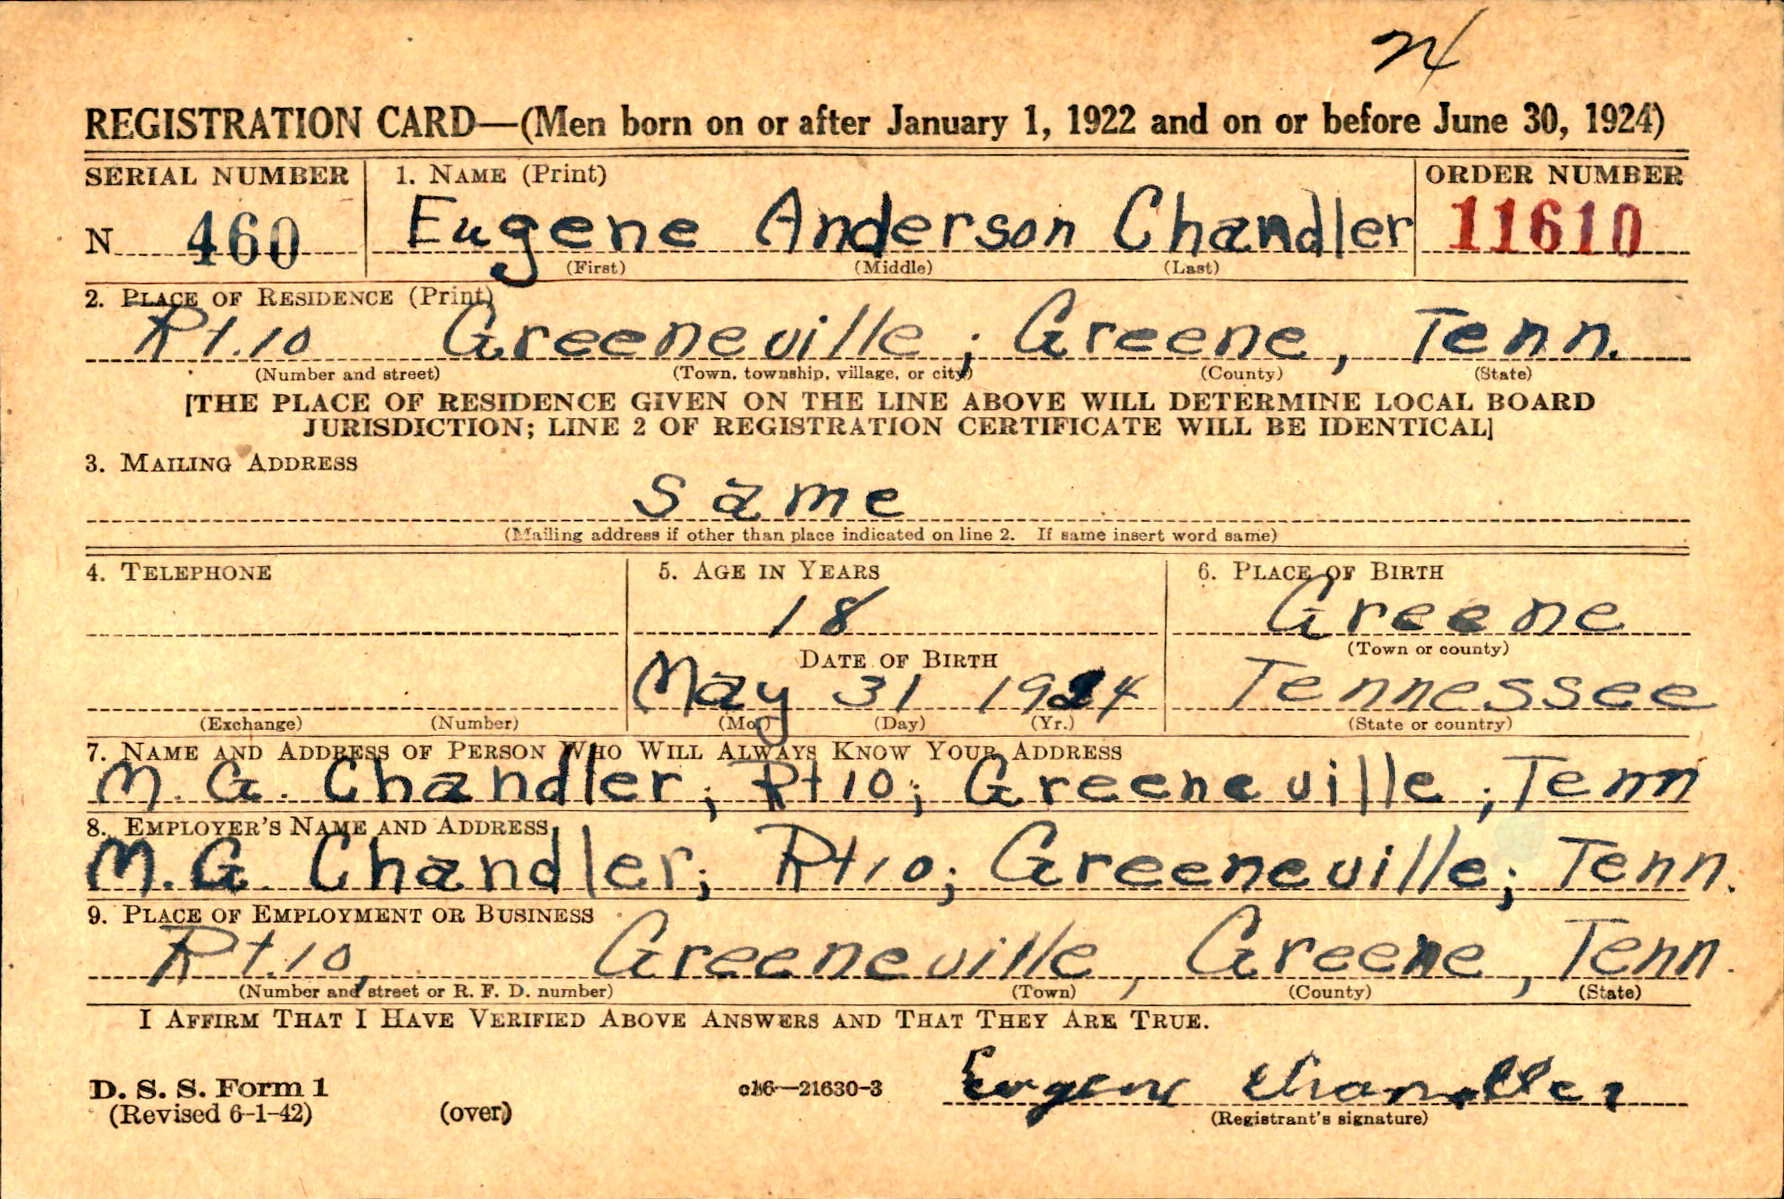 REGISTRATION CARD—(Men born on or after January 1, 1922 and on or before June 30, 1924)
SERIAL NUMBER 1. NAME (Print) ORDER NUMBER
N 460 Eugene Anderson Chandler 11610
(First) (Middle) (Last)
2. PLACE OF RESIDENCE (Print)
Rt. 10 Greeneville; Greene, Tenn.
(Number and street) (Town, township, village, or city) (County) (State)
[THE PLACE OF RESIDENCE GIVEN ON THE LINE ABOVE WILL DETERMINE LOCAL BOARD
JURISDICTION; LINE 2 OF REGISTRATION CERTIFICATE WILL BE IDENTICAL]
3. MAILING ADDRESS
same
(Mailing address if other than place indicated on line 2. If same insert word same)
4. TELEPHONE 5. AGE IN YEARS 6. PLACE OF BIRTH
18 Greene
DATE OF BIRTH (Town or county)
May 31 1924 Tennessee
(Exchange) (Number) (Mo.) (Day) (Yr.) (State or country)
7. NAME AND ADDRESS OF PERSON WHO WILL ALWAYS KNOW YOUR ADDRESS
M. G. Chandler; Rt 10; Greeneville; Tenn
8. EMPLOYER'S NAME AND ADDRESS
M. G. Chandler; Rt 10; Greeneville; Tenn.
9. PLACE OF EMPLOYMENT OR BUSINESS
Rt. 10, Greeneville, Greene, Tenn.
(Number and street or R. F. D. number) (Town) (County) (State)
I AFFIRM THAT I HAVE VERIFIED ABOVE ANSWERS AND THAT THEY ARE TRUE.
D. S. S. Form 1 c16—21630-3 Eugene Chandler
(Revised 6-1-42) (over) (Registrant's signature)